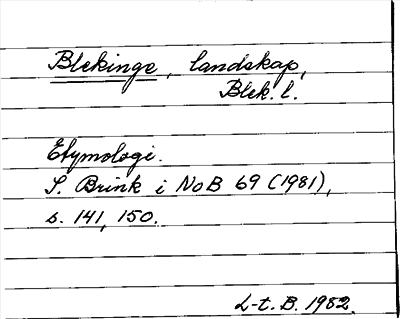 Blekinge, landskap,
Blek. l.
Etymologi.
S. Brink i NoB 69 (1981),
s. 141, 150.
L-t. B. 1982.